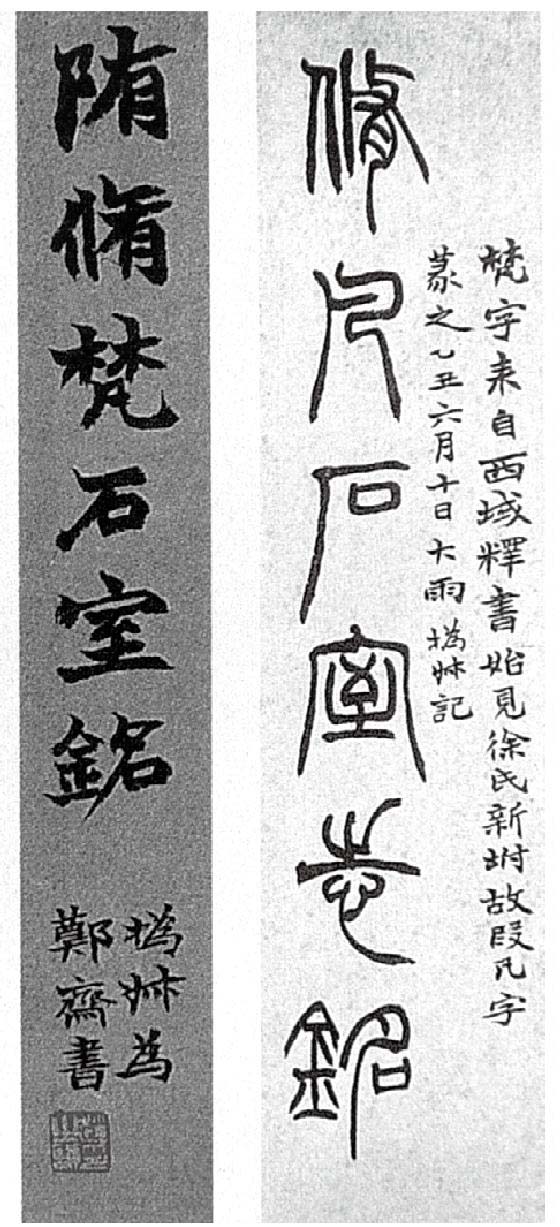 脩凡石室志銘
梵字来自西域釋書始見徐氏新坿故叚凡字
篆之乙丑六月十日大雨撝叔記
陏脩梵石室銘
撝叔為
鄭齋書